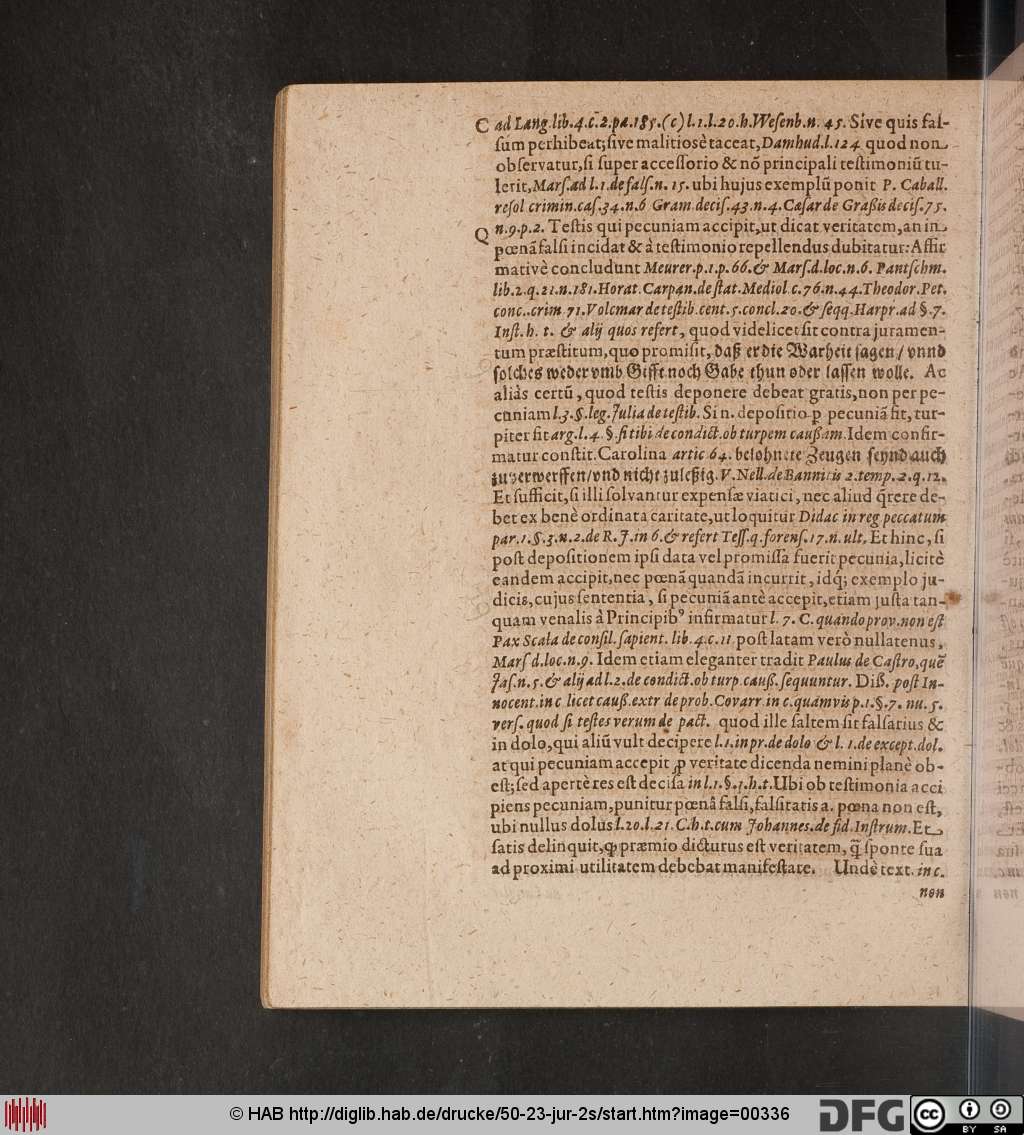 C ad Lang.lib.4.c.2.pa.185.(c) l.1.l.20.h.Wesenb.n. 45. Sive quis fal-
sum perhibeat; sive malitiosè taceat, Damhud.l.124 quod non
observatur, si super accessorio & nõ principali testimoniũ tu-
lerit, Mars.ad l.1.de fals.n. 15. ubi hujus exemplũ ponit P. Caball.
resol crimin.cas.34.n.6 Gram decis.43.n.4.Cæsar de Graßis decis.75.
n.9.p.2. Testis qui pecuniam accipit, ut dicat veritatem, an in
Q pœnã falsi incidat & à testimonio repellendus dubitatur: Affir
mativè concludunt Meurer.p.1.p.66.& Mars.d.loc.n.6. Pantschm.
lib.2.q.21.n.181.Horat.Carpan.de stat.Mediol c.76.n.44.Theodor.Pet.
conc..crim 71.Volcmar de testib.cent.5.concl.20.& seqq.Harpr.ad §.7.
Inst.h. t. & alij quos refert, quod videlicet sit contra juramen-
tum præstitum, quo promisit, daß er die Warheit sagen / vnnd
solches weder vmb Gifft noch Gabe thun oder lassen wolle. Ac
aliàs certũ, quod testis deponere debeat gratis, non per pe-
cuniam l.3.§.leg.Julia de testib. Si n. depositio ꝓ pecuniã fit, tur-
piter fit arg.l.4.§.si tibi de condict.ob turpem caußam. Idem confir-
matur constit. Carolina artic 64. belohnete Zeugen seynd auch
zuverwerffen/vnd nicht zuleßig. V.Nell.de Bannitis 2.temp.2.q.12.
Et sufficit, si illi solvantur expensæ viatici, nec aliud q̃rere de-
bet ex benè ordinata caritate, ut loquitur Didac in reg peccatum
par.1.§.3.n.2.de R.J.in 6.& refert Tess.q.forens.17.n.ult, Et hinc, si
post depositionem ipsi data vel promissa fuerit pecunia, licitè
eandem accipit, nec pœnã quandã incurrit, idq́; exemplo ju-
dicis, cujus sententia, si pecuniã antè accepit, etiam justa tan-
quam venalis à Principibꝰ infirmatur l. 7. C. quando prov.non est
Pax Scala de consil.sapient. lib.4.c.11 post latam verò nullatenus,
Mars d.loc.n.9. Idem etiam eleganter tradit Paulus de Castro, quẽ
Jas.n.5.& alij ad l.2.de condict.ob turp.cauß.sequuntur. Diß. post In-
nocent.in c licet cauß.extr de prob.Covarr.in c.quamvis p.1.§.7. nu.5.
vers. quod si testes verum de pact. quod ille saltem sit falsarius &
in dolo, qui aliũ vult decipere l.1.in pr.de dolo & l. 1.de except.dol.
at qui pecuniam accepit ꝓ veritate dicenda nemini planè ob-
est; sed apertè res est decisa in l.1.§.1.h.t. Ubi ob testimonia acci
piens pecuniam, punitur pœnâ falsi, falsitatis a. pœna non est,
ubi nullus dolus l.20.l.21.C.h.t.cum Johannes.de fid.Instrum. Et
satis delinquit, ꝙ præmio dicturus est veritatem, q̃ sponte sua
ad proximi utilitatem debebat manifestare. Undè text. in c.
non
© HAB http://diglib.hab.de/drucke/50-23-jur-2s/start.htm?image=00336
DFG
cc
BY SA